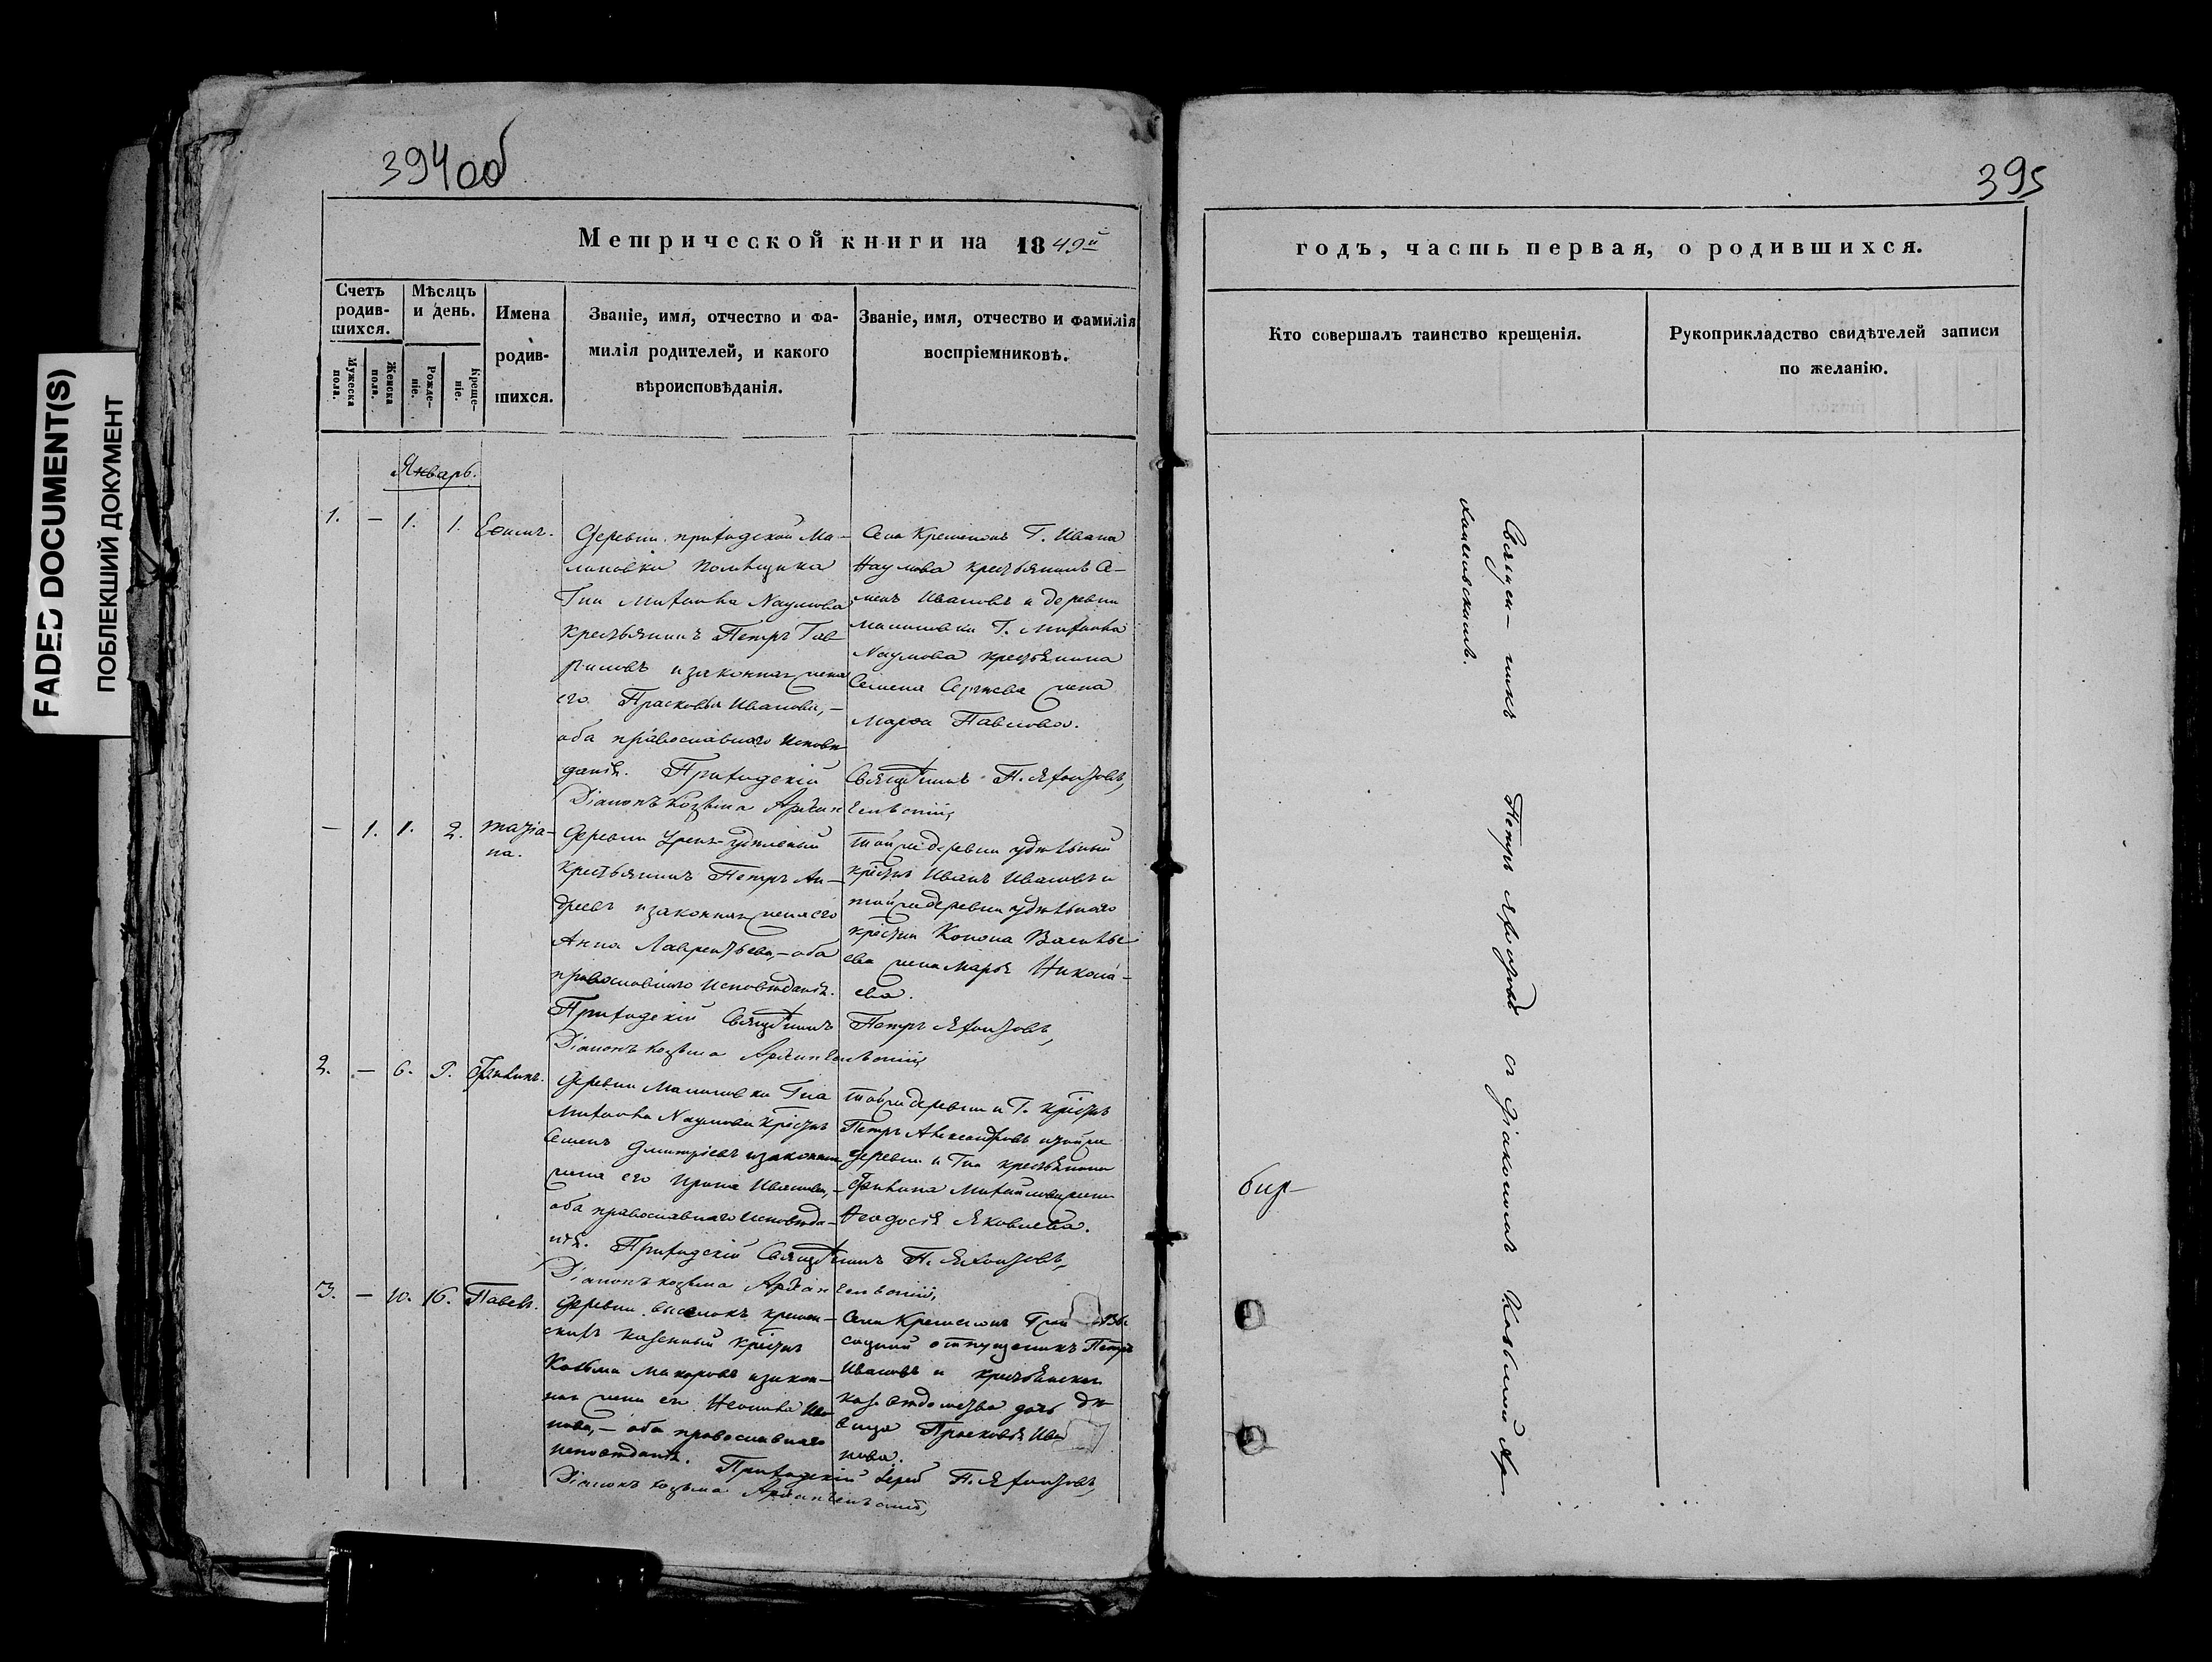 FADED DOCUMENT(S)
ПОБЛЕКШИЙ ДОКУМЕНТ
394об
Метрической книги на 1849й
Счетъ родив-шихся.
Мужеска пола.
Женска пола.
Мѣсяцъ и день.
Рожде-ніе.
Креще-ніе.
Имена
родив-
шихся.
Званіе, имя, отчество и фа-
милія родителей, и какого
вѣроисповѣданія.
Званіе, имя, отчество и фамилія
воспріемниковъ.
Январь.
1. — 1. 1. Ефимъ.
Деревни приходской Ма-
линовки помѣщика
Гна Михаила Наумова
крестьянинъ Петръ Гав-
риловъ и законная жена
его Прасковья Иванова, —
оба православнаго исповѣ
данія. Приходскій
Діаконъ Козьма Архан
Села Г. Ивана
Наумова крестьянинъ Се-
менъ Ивановъ и деревни
Малиновки Г. Михаила
Наумова крестьянина
Семена Сергѣева жена
Марфа Павлова.
Священникъ П.
гельскій,
— 1. 1. 2. Татіа-
на.
Деревни удѣльный
крестьянинъ Петръ Ан-
дреевъ и законная жена его
Анна Лаврентьева, — оба
православнаго исповѣданія.
Приходскій Священникъ
Діаконъ Козьма Архангельскій,
той же деревни удѣльный
крестнъ Иванъ Ивановъ и
той же деревни удѣльнаго
крестна Конона Василье
ва жена Марья Никола-
ева.
Петръ
2. — 6. 9. Филипъ.
Деревни Малиновки Гна
Михаила Наумова крестнъ
Семенъ Дмитріевъ и законная
жена его Ирина Иванова, —
оба православнаго исповѣда-
нія. Приходскій Священникъ П.
Діаконъ Козьма Архангельскій,
той же деревни и Г. крестнъ
Петръ Александровъ и той же
деревни и Гна крестьянина
Филипа Михайлова жена
Феодосія Яковлева.
3. — 10. 16. Павелъ.
Деревни выселокъ кремен-
скихъ казенный крестнъ
Козьма Макаровъ и закон-
ная жена его Иванова, — оба православнаго
исповѣданія. Приходскій Іерей П.
Діаконъ Козьма Архангельскій,
Села
отпущенникъ Петръ
Ивановъ и крестьянская
каз. вѣдомства дочь дѣ
вица Прасковья Ива
нова.
395
годъ, часть первая, о родившихся.
Кто совершалъ таинство крещенія.
Рукоприкладство свидѣтелей записи
по желанію.
Священ — никъ Петръ съ діакономъ Козьмой Ар-
хангельскимъ.